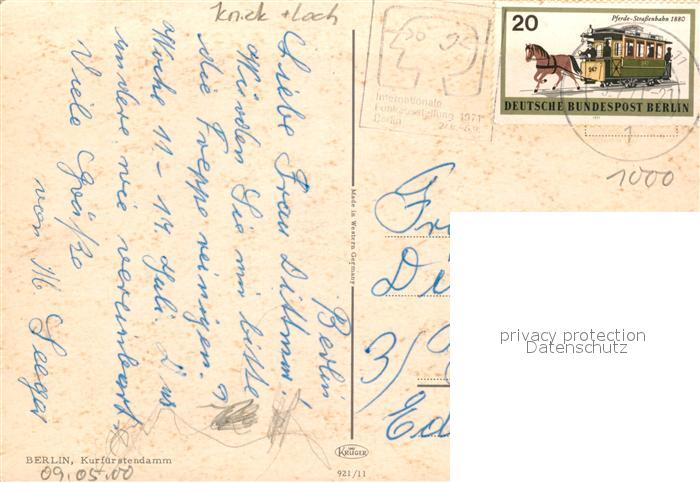 Knick + Loch
Berlin
Liebe Frau Dittmar!
Würden Sie mir bitte
die Treppe reinigen.
Woche 11 - 17. Juli.
andere wie vereinbart.
Viele Grüße
von M. Seeger
BERLIN, Kurfürstendamm
09.05.00
Made in Western Germany
KRÜGER
921/11
Internationale
Funkausstellung 1971
Berlin
20
Pferde-Straßenbahn 1880
DEUTSCHE BUNDESPOST BERLIN
1
1000
Fr
Di
3/
privacy protection
Datenschutz